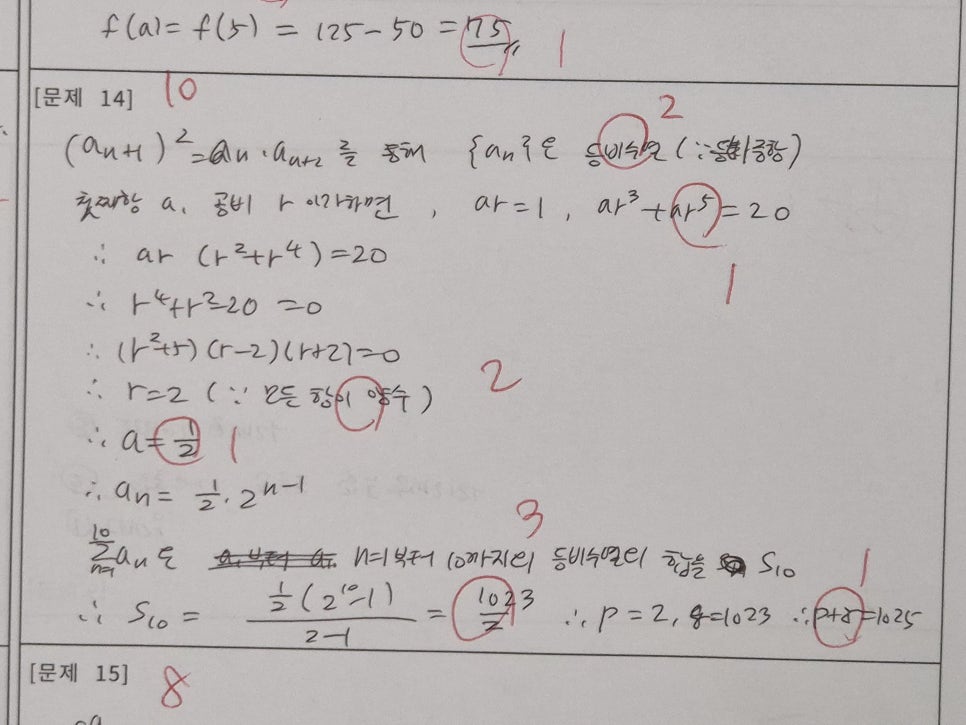 f(a) = f(5) = 125 - 50 = 75 1
[문제 14] 10
(aₙ₊₁)² = aₙ · aₙ₊₂ 를 통해 {aₙ}은 등비수열 (∵등비중항) 2
첫째항 a, 공비 r 이라하면, ar = 1, ar³ + ar⁵ = 20
∴ ar (r² + r⁴) = 20 1
∴ r⁴ + r² - 20 = 0
∴ (r² + 5)(r - 2)(r + 2) = 0
∴ r = 2 (∵ 모든 항이 양수) 2
∴ a = 1/2 1
∴ aₙ = 1/2 · 2ⁿ⁻¹
∑ₙ₌₁¹⁰ aₙ 은 n=1부터 10까지의 등비수열의 합을 S₁₀ 3 1
∴ S₁₀ = 1/2 (2¹⁰ - 1) / 2 - 1 = 1023/2 ∴ p = 2, q = 1023 ∴ p + q = 1025
[문제 15] 8